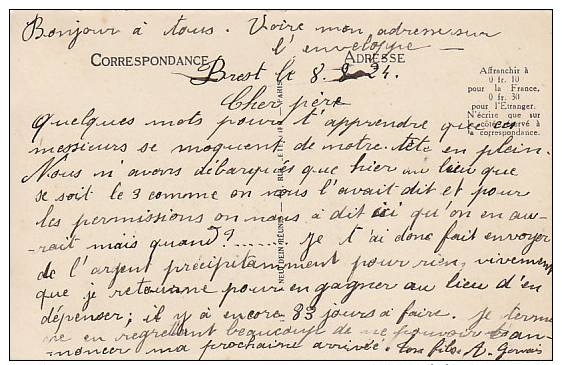 Bonjour à tous. Voire mon adresse sur
l'enveloppe —
CORRESPONDANCE
ADRESSE
Brest le 8. 24.
Affranchir à
0 fr. 10
pour la France,
0 fr. 30
pour l'Etranger.
N'écrire que sur
côté réservé à
correspondance.
Cher père
Quelques mots pour t'apprendre que ces
messieurs se moquent de notre tête en plein.
Nous n'avons débarqués que hier au lieu que
se soit le 3 comme on nous l'avait dit et pour
les permissions on nous a dit ici qu'on en au-
rait mais quand? ...... je t'ai donc fait envoyer
de l'argent précipitamment pour rien, vivement
que je retourne pour en gagner au lieu d'en
dépenser; il y à encore 83 jours à faire. je termi
ne en regrettant beaucoup de ne pouvoir t'an-
noncer ma prochaine arrivée. ton fils A. Gervais